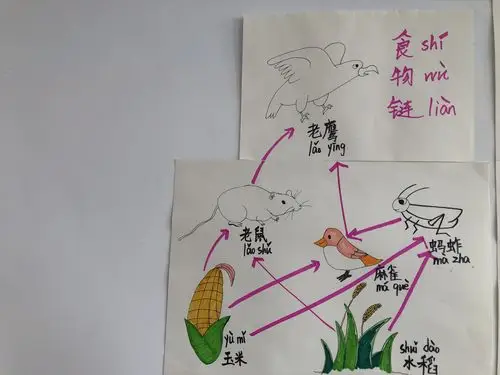 食 shí
物 wù
链 liàn
老鹰
lǎo yīng
老鼠
lǎo shǔ
蚂蚱
mà zha
麻雀
má què
yù mǐ
玉米
shuǐ dào
水稻